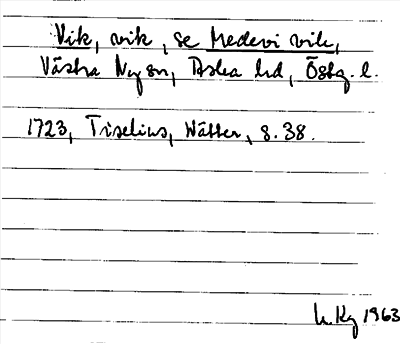 Vik, vik, se Medevi vik,
Västra Ny sn, Aska hd, Östg. l.
1723, Tiselius, Wätter, s. 38.
1963